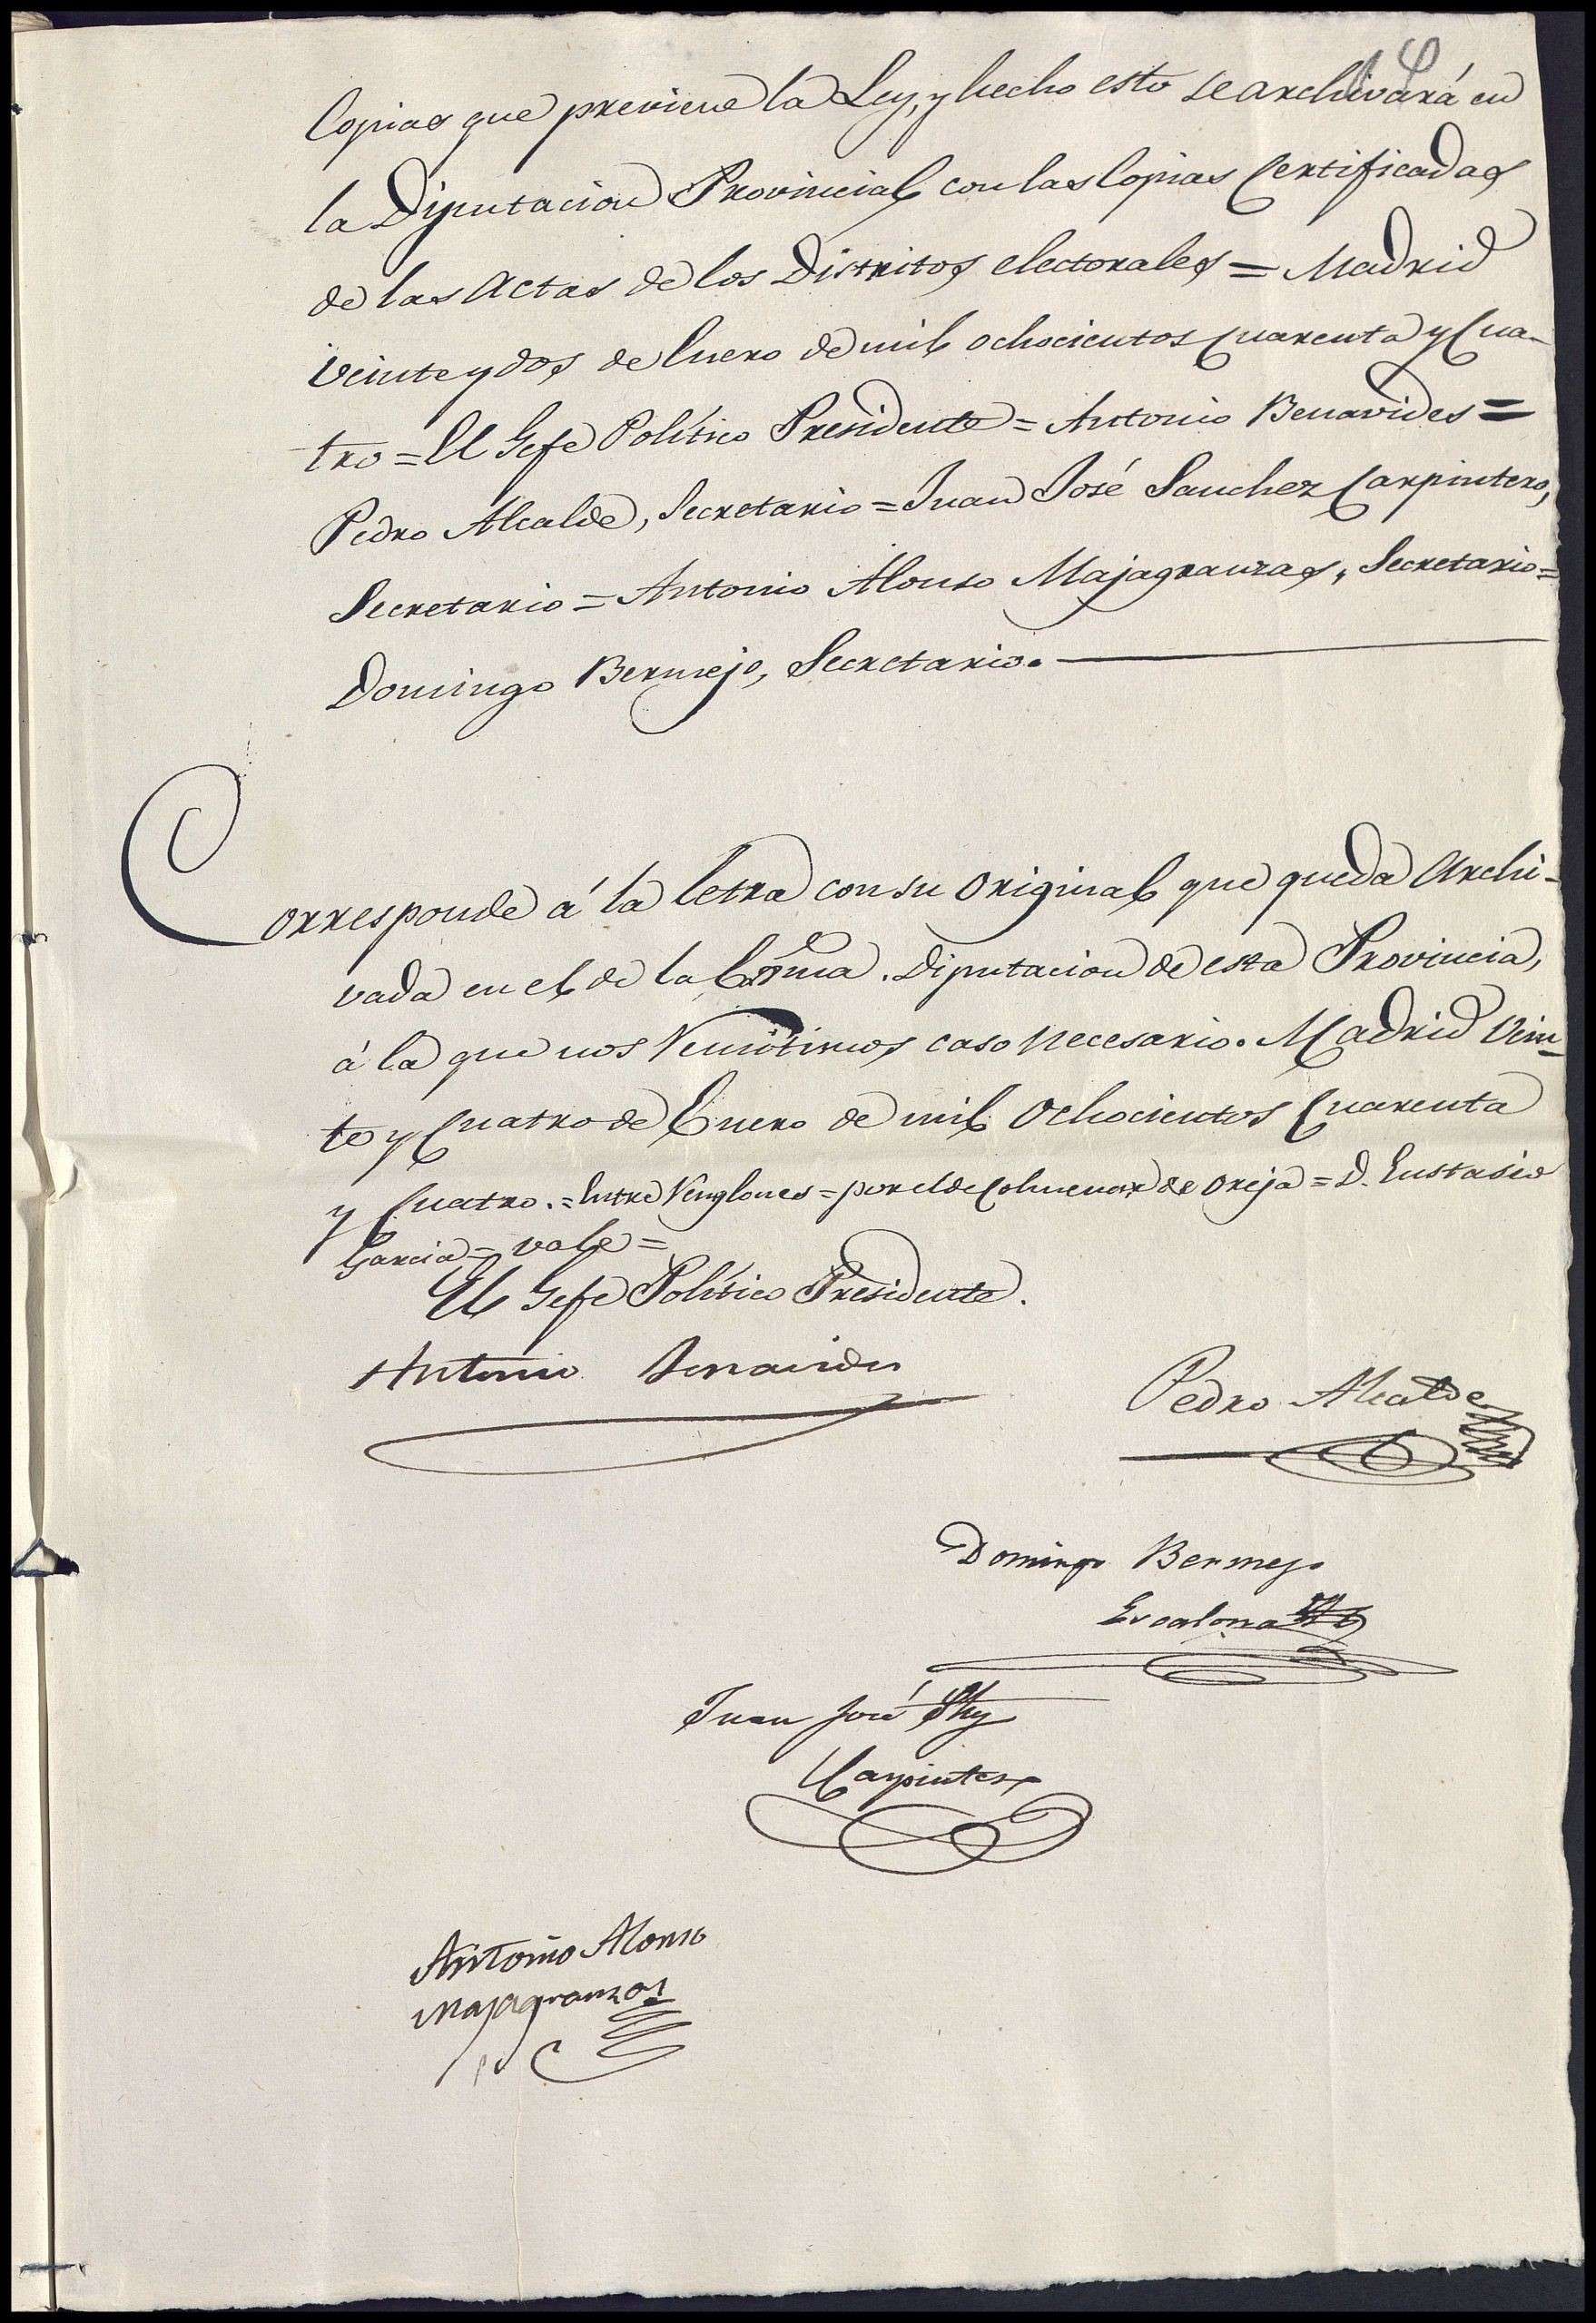 Copias que previene la Ley, y hecho esto se archivará en
la Diputacion Provincial con las Copias Certificadas
de las actas de los Distritos electorales = Madrid
veinte y dos de Enero de mil ochocientos Cuarenta y Cua-
tro = El Gefe Político Presidente = Antonio Benavides =
Pedro Alcalde, Secretario = Juan José Sanchez Carpintero,
Secretario = Antonio Alonso Majagranzas, Secretario =
Domingo Bermejo, Secretario.
Corresponde á la letra con su original que queda Archi-
vada en el de la Excma. Diputacion de esta Provincia,
á la que nos remitimos caso necesario. Madrid Vein-
te y Cuatro de Enero de mil Ochocientos Cuarenta
y Cuatro. = Entre Renglones = por el de Colmenar de Oreja = D. Eustasio
Garcia = vale =
El Gefe Político Presidente.
Antonio Benavides
Pedro Alcalde
Domingo Bermejo
Escalona
Juan José Shz
Carpintero
Antonio Alonso
Majagranzas